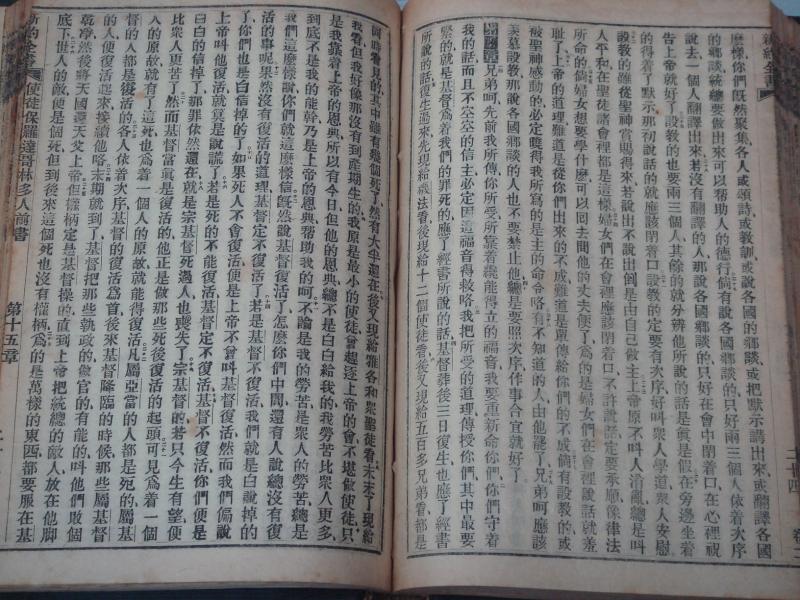 麽樣、你們既然聚集、各人或頌詩、或教訓、或說各國的鄉談、或把默示講出來、或翻譯各國
的鄉談、統總要做出來可以帮助人的德行、倘有說各國鄉談的、只好兩三個人、依着次序
說去、一個人翻譯出來、若沒有翻譯的人、那說各國鄉談的、只好在會中閉着口、在心裡祝
告上帝就好了、設教的也要兩三個人、其餘的就分辨他所說的話、是眞是假、在旁邊坐着
的得着了默示、那初說話的就應該閉着口、設教的定要有次序、好叫衆人學道、衆人安慰
設教的雖從聖神賞賜得來、說出不說出、倒是由自己做主、上帝原不叫人淆亂、總是叫
人平和、在聖徒諸會裡都是這樣、婦女們在會裡應該閉着口、不許說話、定要承順、像律法
所說的、倘婦女想要學什麽、可以回去問他的丈夫便了、爲的是婦女們在會裡說話、就羞
耻了、上帝的道理、難道是從你們出來的不成、難道是單傳給你們的不成、倘有設教的、或
被聖神感動的、必定曉得我所寫的、是主的命令、畧有不知道的人、由他罷了、兄弟呵、應該
羨慕設教、那說各國鄉談的人、也不要禁止他、總是要照次序作事合宜就好了、
兄弟呵、先前我所傳、你所受、所靠着纔能得立的福音、我要重新命你們、你們守着
我的話、而且不空空的信主、必定因這福音得救、我把所受的道理傳授你們、其中最要
緊的、就是基督爲着我們的罪死的、應了經書所說的話、基督葬後三日復生、也應了經書
所說的話、復生過來、先現給磯法看、後現給十二個使徒看、後又現給五百多兄弟看、都是
同時看見的、其中雖有幾個死了、然有大半還在、後又現給雅各和衆聖徒看、末末了現給
我看、但我好像那沒有到產期生的、我原是最小的使徒、曾趕逐上帝的會、不堪做使徒、只
是我靠着上帝的恩典、所以有今日、但他的恩典、總不是白白給我的、我勞苦比衆人更多、
到底不是我的能幹、乃是上帝的恩典帮助我的、呵、不論是我的勞苦、是衆人的勞苦、總是
我們這麽樣傳、你們就這麽樣信、既然說基督復活了、怎麽你們中間、還有人說總沒有復
活的事呢、果然沒有復活的道理、基督定不復活了、若是基督不復活、我們就是白說掉的
了、你們也是白信掉的了、如果死人不會復活、便是上帝不曾叫基督復活、然而我們偏說
上帝叫他復活了、就是說謊了、若是死的不能復活、基督定不復活、基督不復活、你們便是
白白的信掉了、那罪依然還在、就是宗基督死過人、也喪失了、宗基督的、若只今生有望、便
比衆人更苦了、然而基督當眞是復活的、他正是做那些死後復活的起頭、可見爲着一個
人的原故、就有了這死、也爲着一個人的原故、就能得復活、凡屬亞當的人、都是死的、屬基
督的人、都是復活的、各人依着次序、基督的復活爲首、後來基督降臨的時候、那些屬基督
的人、便依次復活起來、接續他咯、末期就到了、基督把那些執政的、做官的、有能的、叫他們敗個
乾凈、然後將天國還天父上帝、但權柄定是基督操的、直到上帝把統總的敵人、放在他脚
底下、世人的敵、便是個死、但到後來、這個死也沒有權柄、爲的是萬樣的東西、都要服在基
新約全書 使徒保羅達哥林多人前書 第十五章